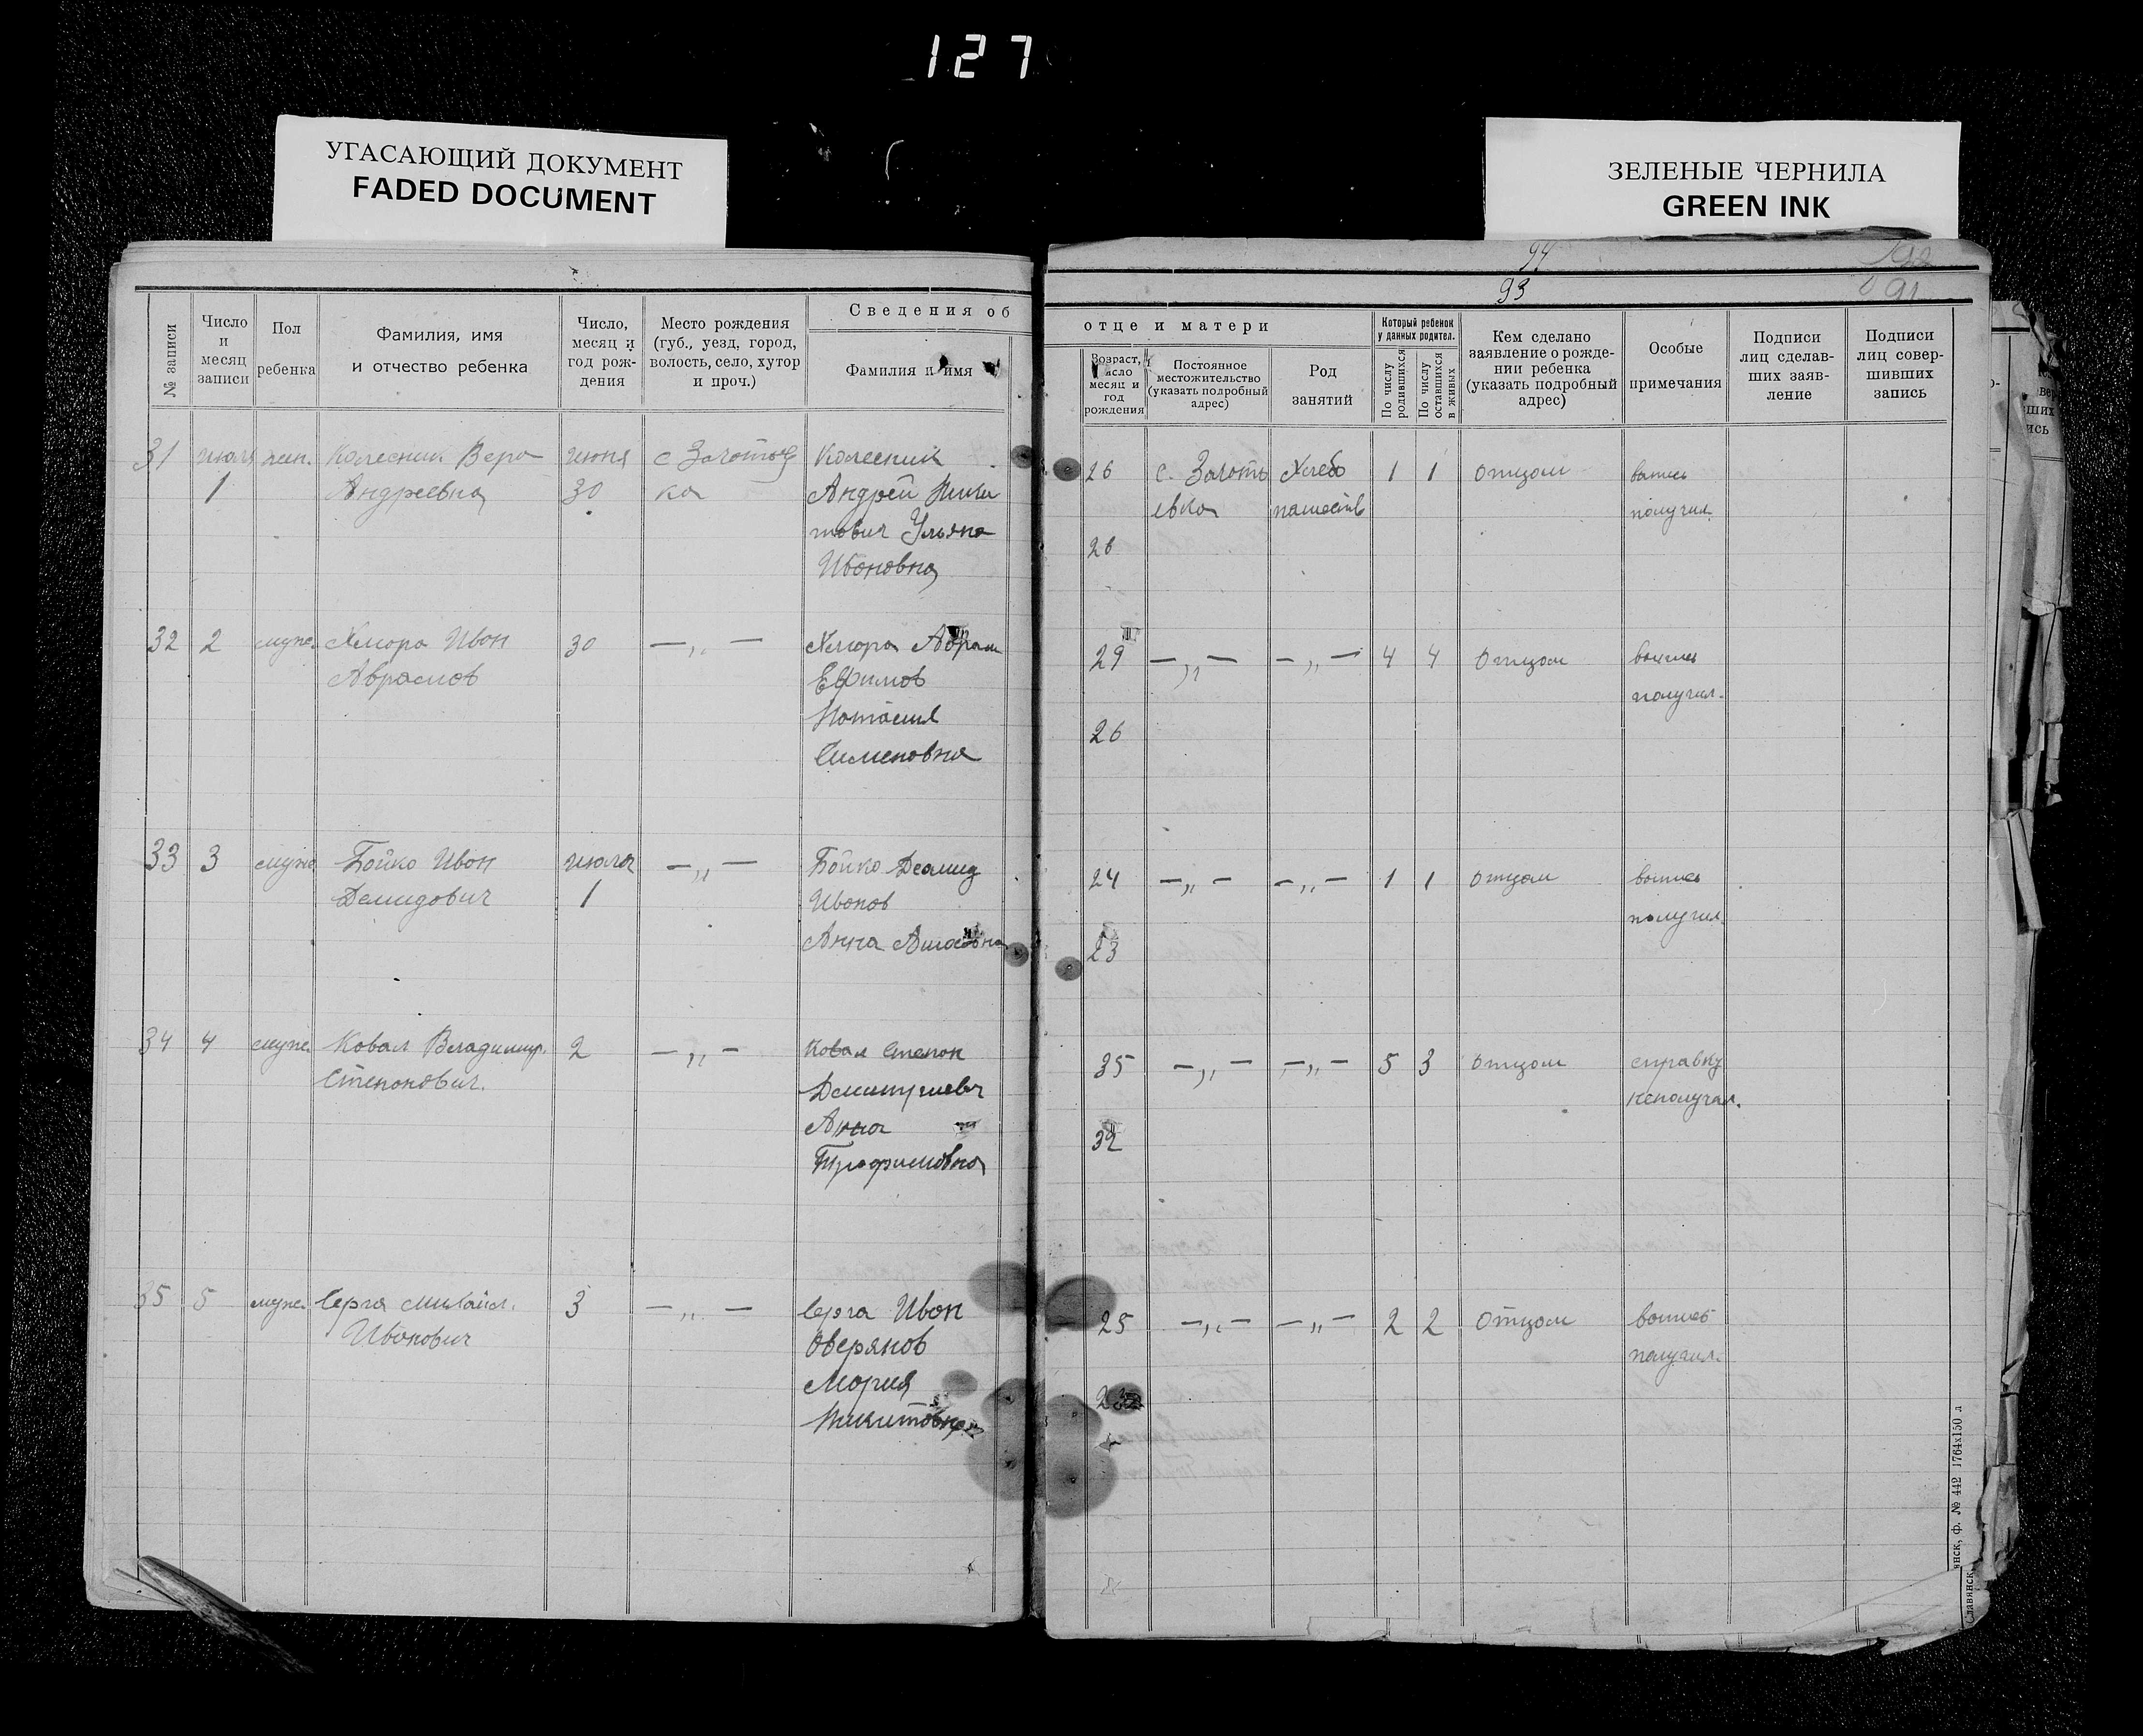 127
УГАСАЮЩИЙ ДОКУМЕНТ
FADED DOCUMENT
ЗЕЛЕНЫЕ ЧЕРНИЛА
GREEN INK
94
93
91
№ записи
Число
и
месяц
записи
Пол
ребенка
Фамилия, имя
и отчество ребенка
Число,
месяц и
год рож-
дения
Место рождения
(губ., уезд, город,
волость, село, хутор
и проч.)
Сведения об
Фамилия и имя
отце и матери
Возраст,
число
месяц и
год
рождения
Постоянное
местожительство
(указать подробный
адрес)
Род
занятий
Который ребенок
у данных родител.
По числу
родившихся
По числу
оставшихся
в живых
Кем сделано
заявление о рожде-
нии ребенка
(указать подробный
адрес)
Особые
примечания
Подписи
лиц сделав-
ших заяв-
ление
Подписи
лиц совер-
шивших
запись
31 июля жен. Колесник Вера июня с Золотье Колесник
1 Андреевна 30 ка Андрей Ники
тович Ульяна
Ивановна
26 с. Золоть Хлебо 1 1 отцом
евка пашест получил
26
32 2 муж. Хмора Иван 30 — „ — Хмора Абрам
Аврамов Ефимов
Наталия
Сименовна
29 — „ — — „ — 4 4 Отцом
получил.
26
33 3 муж. Бойко Иван июля — „ — Бойко Демид
Демидович 1 Иванов
Анна
24 — „ — — „ — 1 1 Отцом
получил.
23
34 4 муж. Ковал Владимир. 2 — „ — Ковал Степан
Степанович. Демитриевич
Анна
Трофимовна
35 — „ — — „ — 5 3 Отцом справку
неполучал.
32
35 5 муж. Серга Михаил. 3 — „ — Серга Иван
Иванович Оверянов
Мория
Никитовна
25 — „ — — „ — 2 2 Отцом
получил.
23
Славянск, ф. № 442 1764х150 л